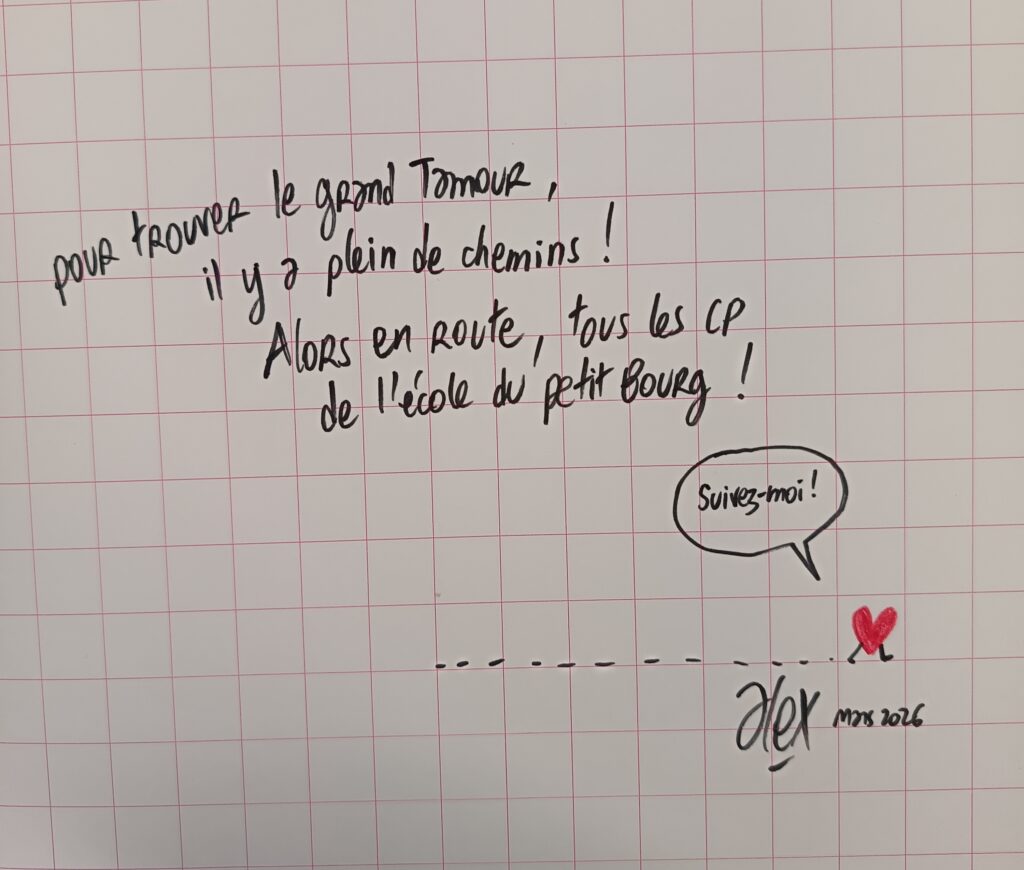 pour trouver le grand Tamour,
il y a plein de chemins !
Alors en route, tous les CP
de l'école du petit Bourg !
Suivez-moi !
alex mars 2026